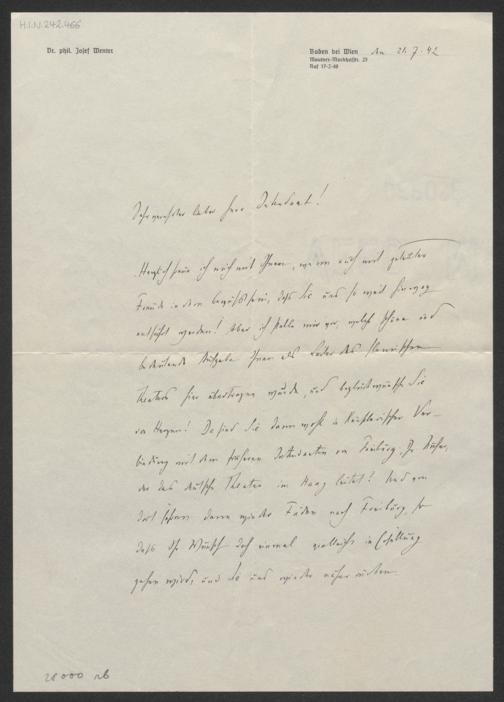 H.I.N. 242.466
Dr. phil. Josef Wenter
Baden bei Wien den 21.7.42
Ruf 17-2-40
Sehr verehrter lieber Herr Intendant!
Herzlich freue ich mich mit Ihnen, wenn auch mit geteilter
Freude in dem Bewußtsein, daß Sie uns so weit hinweg
entführt werden! Aber ich stelle mir vor, welch schöne und
bedeutende Aufgabe Ihnen als Leiter des flämischen
Theaters hier übertragen wurde, und beglückwünsche Sie
von Herzen! Da sind Sie dann wohl in künstlerischer Ver-
bindung mit dem früheren Intendanten von Freiburg, Dr. Nufer,
der das deutsche Theater im Haag leitet? Und von
dort führen dann wieder Fäden nach Freiburg, so
daß Ihr Wunsch doch einmal vielleicht in Erfüllung
gehen wird, und Sie uns wieder näher rücken.